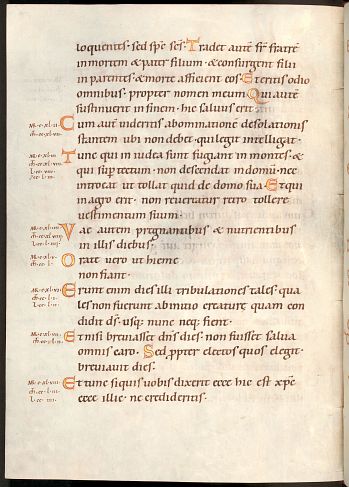 loquentes. sed sp̄s sc̄s. Tradet autē fr̄ fratrē
in mortem & pater filium. & consurgent filii
in parentes. & morte afficient eos. Et eritis odio
omnibus. propter nomen meum. Qui autē
sustinuerit in finem. hic saluus erit.
Cum autē uideritis abominationē desolationis
stantem ubi non debet. qui legit intelligat.
Tunc qui in iudea sunt fugiant in montes. &
qui sup tectum. non descendat in domū. nec
introeat ut tollat quid de domo sua. Et qui
in agro erit. non reuertatur retro tollere
uestimentum suum.
Vae autem pregnantibus & nutrientibus
in illis diebus.
Orate uero ut hieme
non fiant.
Erunt enim dies illi tribulationes tales. qua
les non fuerunt ab initio creaturę quam con
didit ds̄. usq; nunc neq; fient.
Et nisi breuiasset dn̄s dies. non fuisset salua
omnis caro. Sed ppter electos quos elegit.
breuiauit dies.
Et tunc si quis uobis dixerit ecce hic est xp̄c
ecce illic. ne credideritis.